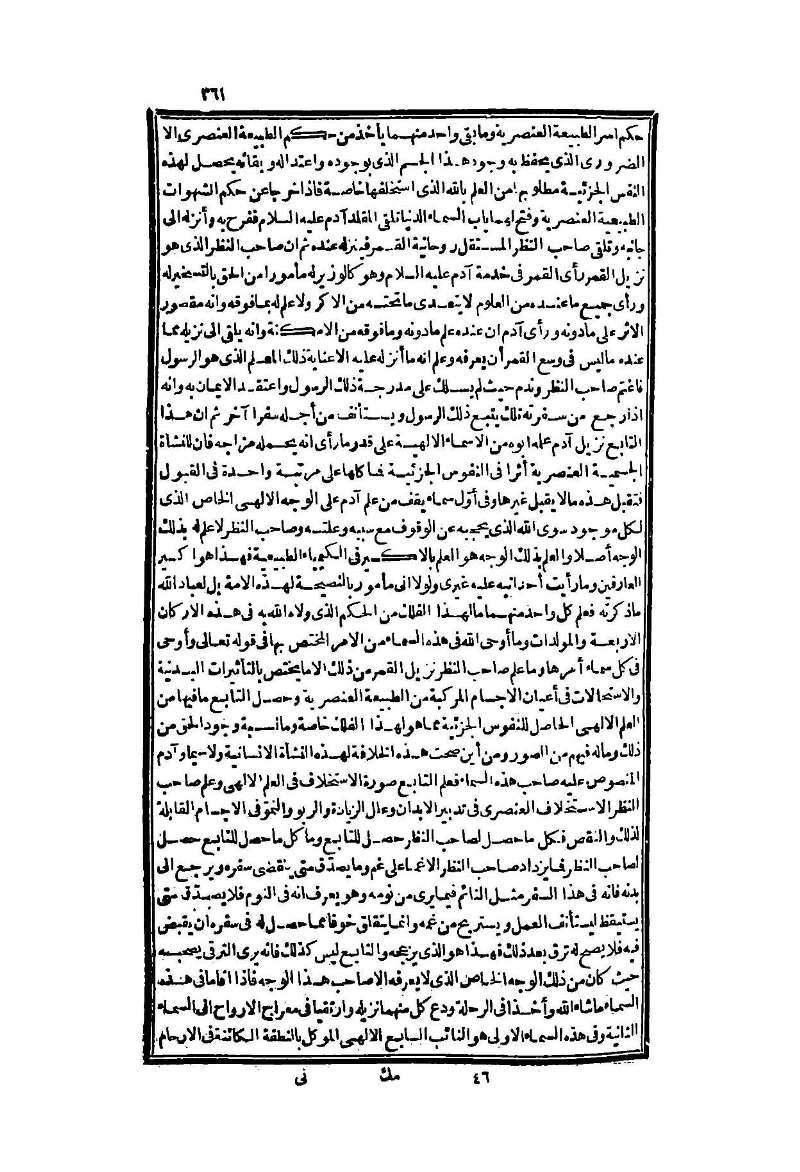 ٣٦١
حكم اسر الطبيعة العنصرية وما بقى واحد منهما يأخذ من حكم الطبيعة العنصرى الا
الضرورى الذى يحفظ به وجود هذا الجسم الذى بوجوده واعتداله وبقائه يحصل لهذه
النفس الجزئية مطلوبها من العلم بالله الذى استخلفها خاصة فاذا خرجا عن حكم الشهوات
الطبيعية العنصرية وفتح لهما باب السماء الدنيا تلقى المقلد آدم عليه السلام ففرح به وأنزله الى
جانبه وتلقى صاحب النظر المستقل روحانية القمر فينزله عنده ثم ان صاحب النظر الذى هو
نزيل القمر رأى القمر فى خدمة آدم عليه السلام وهو كالوزير له مأمورا من الحق بالتسخير له
ورأى جميع ما عنده من العلوم لا يتعدى ما تحته من الاكر ولا علم له بما فوقه وانه مقصور
الاثر على مادونه ورأى آدم ان عنده علم مادونه وما فوقه من الامكنة وانه يلقى الى نزيله مما
عنده ما ليس فى وسع القمر أن يعرفه وعلم انه ما أنزله عليه الا عناية ذلك المعلم الذى هو الرسول
فاغتم صاحب النظر وندم حيث لم يسلك على مدرجة ذلك الرسول واعتقد الايمان به وانه
اذا رجع من سفرته تلك يتبع ذلك الرسول ويستأنف من أجله سفرا آخر ثم ان هذا
التابع نزيل آدم علمه ابوه من الاسماء الالهية على قدر ما رأى انه يحمله مزاجه فان للنشأة
الجسمية العنصرية أثرا فى النفوس الجزئية فما كلها على مرتبة واحدة فى القبول
فتقبل هذه مالا يقبل غيرها وفى أول سماء يقف من علم آدم على الوجه الالهى الخاص الذى
لكل موجود سوى الله الذى يحجبه عن الوقوف مع سببه وعلته وصاحب النظر لا علم له بذلك
الوجه أصلا والعلم بذلك الوجه هو العلم بالاكسير فى الكيمياء الطبيعية فهذا هو اكسير
العارفين وما رأيت أحدا نبه عليه غيرى ولولا انى مأمور بالنصيحة لهذه الامة بل لعباد الله
ما ذكرته فعلم كل واحد منهما ما لهذا الفلك من الحكم الذى ولاه الله به فى هذه الاركان
الاربعة والمولدات وما أوحى الله فى هذه السماء من الامر المختص بها فى قوله تعالى وأوحى
فى كل سماء أمرها وما علم صاحب النظر نزيل القمر من ذلك الا ما يختص بالتأثيرات البدنية
والاستحالات فى أعيان الاجسام المركبة من الطبيعة العنصرية وحصل التابع ما فيها من
العلم الالهى الحاصل للنفوس الجزئية مما هو لهذا الفلك خاصة وما نسبة وجود الحق من
ذلك وماله فيهم من الصور ومن أين صحت هذه الخلافة لهذه النشأة الانسانية ولا سيما وآدم
المنصوص عليه صاحب هذه السماء فعلم التابع صورة الاستخلاف فى العلم الالهى وعلم صاحب
النظر الاستخلاف العنصرى فى تدبير الابدان وعلل الزيادة والربو والنمو فى الاجسام القابلة
لذلك والنقص فكل ما حصل لصاحب النظر حصل للتابع وما كل ما حصل للتابع حصل
لصاحب النظر فما يزداد صاحب النظر الا غما على غم وما يصدق متى ينقضى سفره ويرجع الى
بدنه فانه فى هذا السفر مثل النائم فيما يرى من نومه وهو يعرف انه فى النوم فلا يصدق متى
يستيقظ ليستأنف العمل ويستريح من غمه وانما يتقلق خوفا مما حصل له فى سفره ان يقبض
فيه فلا يصح له ترق بعد ذلك فهذا هو الذى يزعجه والتابع ليس كذلك فانه يرى الترقى يصحبه
حيث كان من ذلك الوجه الخاص الذى لا يعرفه الا صاحب هذا الوجه فاذا اقاما فى هذه
السماء ما شاء الله وأخذا فى الرحلة ودع كل منهما نزيله وارتقيا فى معراج الارواح الى السماء
الثانية وفى هذه السماء الاولى هو النائب السابع الالهى الموكل بالنطفة الكائنة فى الارحام
٤٦ مك نى